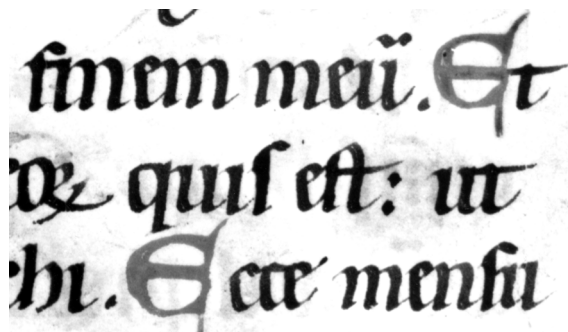 finem meū. Et
eoꝝ quiſ eſt: ut
chi. Ecce menſu